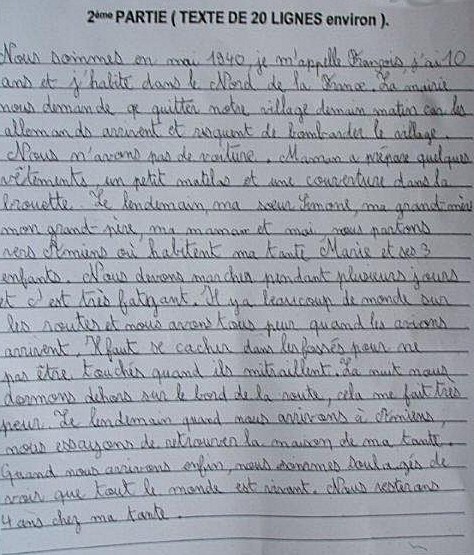 2ème PARTIE ( TEXTE DE 20 LIGNES environ ).
Nous sommes en mai 1940 je m'appelle François, j'ai 10
ans et j'habite dans le Nord de la France. La mairie
nous demande de quitter notre village demain matin car les
allemands arrivent et risquent de bombarder le village.
Nous n'avons pas de voiture. Maman a prépare quelques
vêtements un petit matelas et une couverture dans la
brouette. Le lendemain, ma soeur Simone, ma grand-mère
mon grand-père, ma maman et moi nous partons
vers Amiens où habitent ma tante Marie et ses 3
enfants. Nous devons marcher pendant plusieurs jours
et c'est très fatigant. Il y a beaucoup de monde sur
les routes et nous avons tous peur quand les avions
arrivent. Il faut se cacher dans les fossés pour ne
pas être touchés quand ils mitraillent. La nuit nous
dormons dehors sur le bord de la route, cela me fait très
peur. Le lendemain quand nous arrivons à Amiens,
nous essayons de retrouver la maison de ma tante.
Quand nous arrivons enfin, nous sommes soulagés de
voir que tout le monde est vivant. Nous resterons
4 ans chez ma tante.